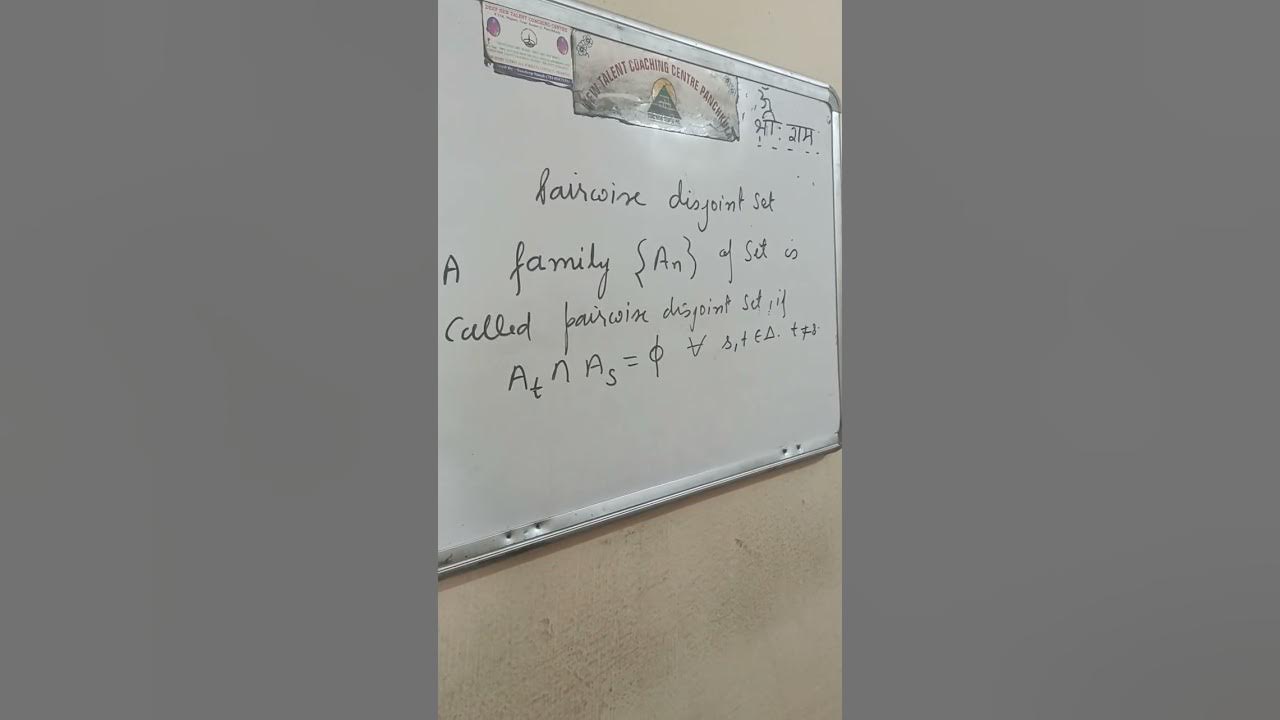 DEEP NEW TALENT COACHING CENTRE
NEW TALENT COACHING CENTRE PANCHKULA
ॐ
श्री: राम
Pairwise disjoint set
A family {An} of set is
Called pairwise disjoint set, if
At ∩ As = ϕ ∀ s,t ∈ Δ. t≠s.